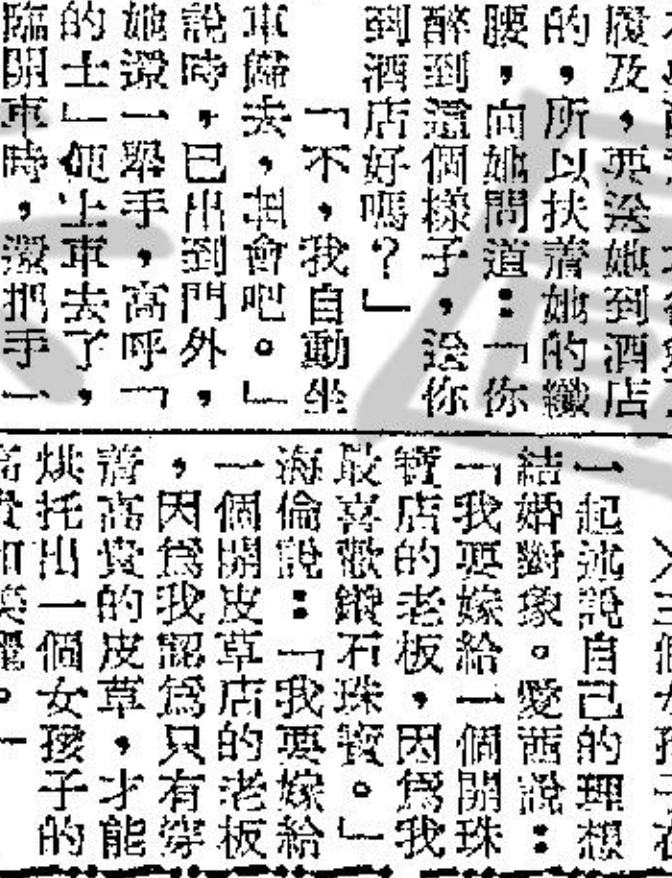 履及，要送她到酒店
的，所以扶着她的纖
腰，向她問道：「你
醉到這個樣子，送你
到酒店好嗎？」
「不，我自動坐
車備去，揾會吧。」
說時，已出到門外，
她還一舉手，高呼「
的士」便上車去了，
臨開車時，還把手一
三個女孩子在
一起述說自己的理想
結婚對象。愛茜說：
「我要嫁給一個開珠
寶店的老板，因爲我
最喜歡鑽石珠寶。」
海倫說：「我要嫁給
一個開皮草店的老板
，因爲我認爲只有穿
着高貴的皮草，才能
烘托出一個女孩子的
高貴和美麗。」